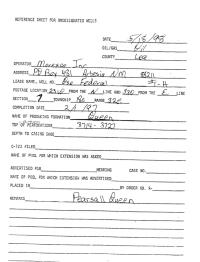 REFERENCE SHEET FOR UNDESIGNATED WELLS
DATE 5/15/98
OIL/GAS Oil
COUNTY Lea
OPERATOR Marbob Inc
ADDRESS PO Box 431 Artesia NM 88211
LEASE NAME, WELL NO. Federal
FOOTAGE LOCATION FROM THE N LINE AND 330 FROM THE E LINE
SECTION 7 TOWNSHIP RANGE 32E
COMPLETION DATE
NAME OF PRODUCING FORMATION Queen
TOP OF PERFORATIONS 3714 - 3727
DEPTH TO CASING SHOE
C-123 FILED
NAME OF POOL FOR WHICH EXTENSION WAS ASKED
ADVERTISED FOR HEARING CASE NO.
NAME OF POOL FOR WHICH EXTENSION WAS ADVERTISED
PLACED IN BY ORDER NO. R-
REMARKS Pearsall Queen